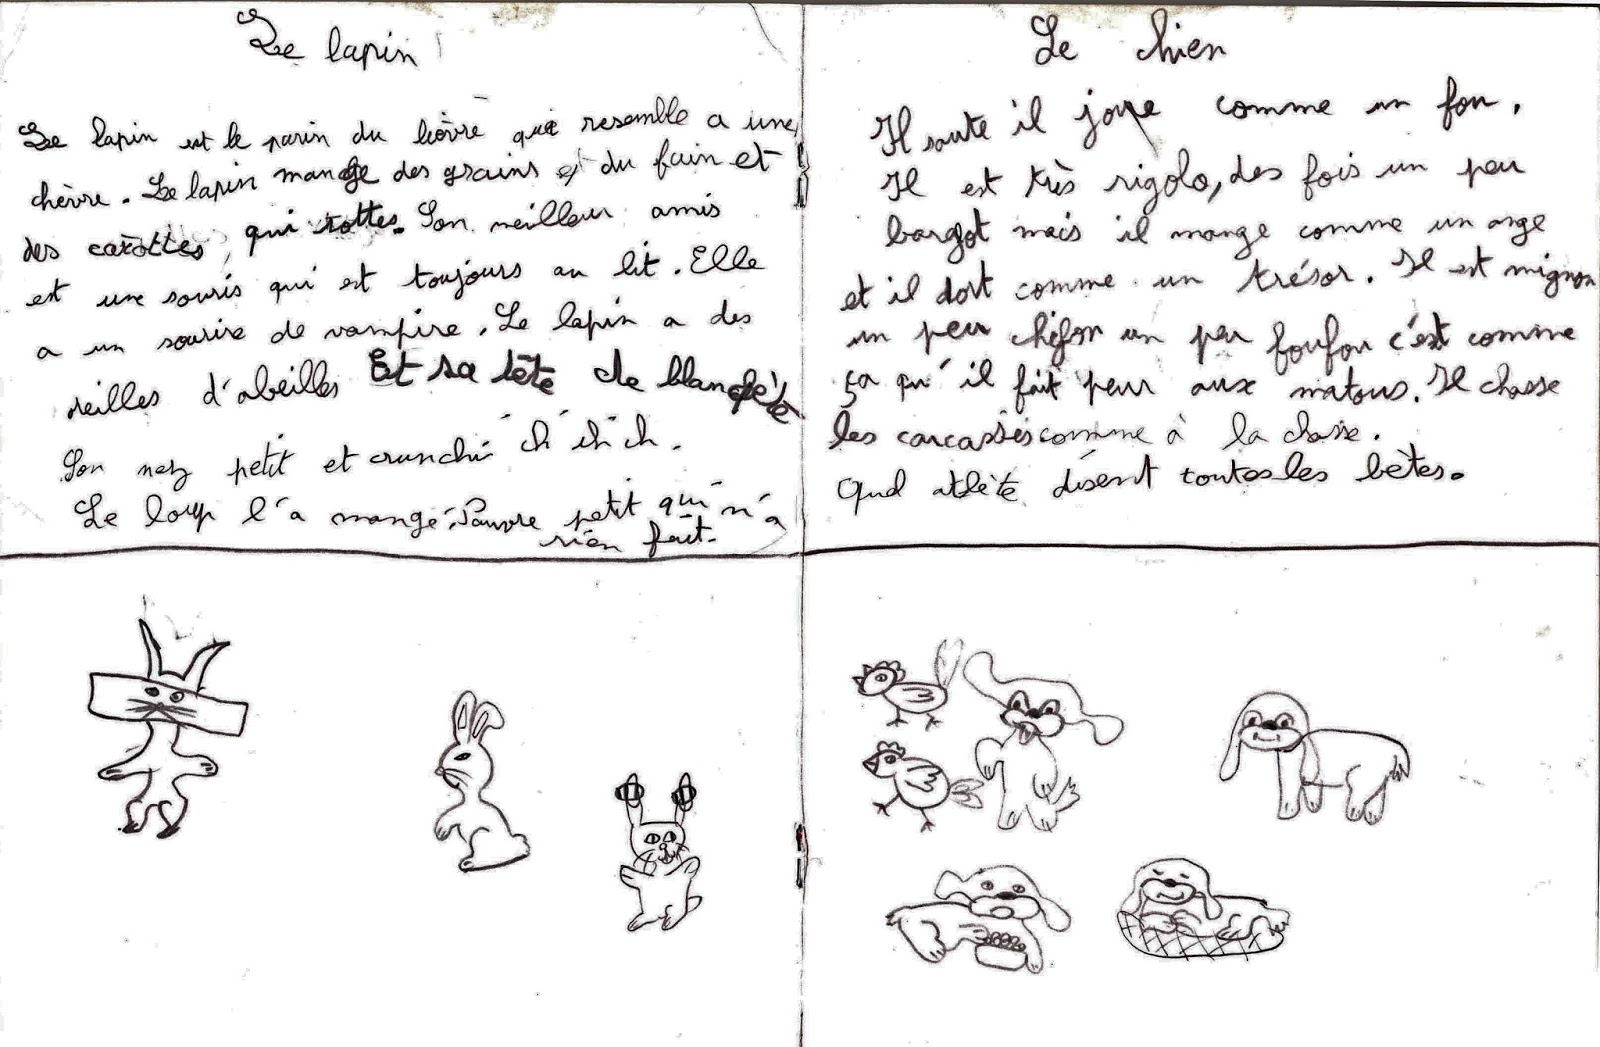 Le lapin
Le lapin est le parin du lièvre que resemble a une
chèvre. Le lapin mange des grains et du fuin et
des carottes, qui rottes. Son meilleur amis
est une souris qui est toujours au lit. Elle
a un sourire de vampire. Le lapin a des
reilles d'abeilles Et sa tête de
Son nez petit et crunchi ch ch ch.
Le loup l'a mangé. Pauvre petit qui n'a
rien fait.
Le chien
Il saute il joue comme un fou.
Il est très rigolo, des fois un peu
bargot mais il mange comme un ange
et il dort comme un trésor. Il est mignon
un peu chifon un peu foufou c'est comme
ça qu'il fait peur aux matous. Il chasse
les carcasses comme à la chasse.
Quel atlète disent toutes les bètes.